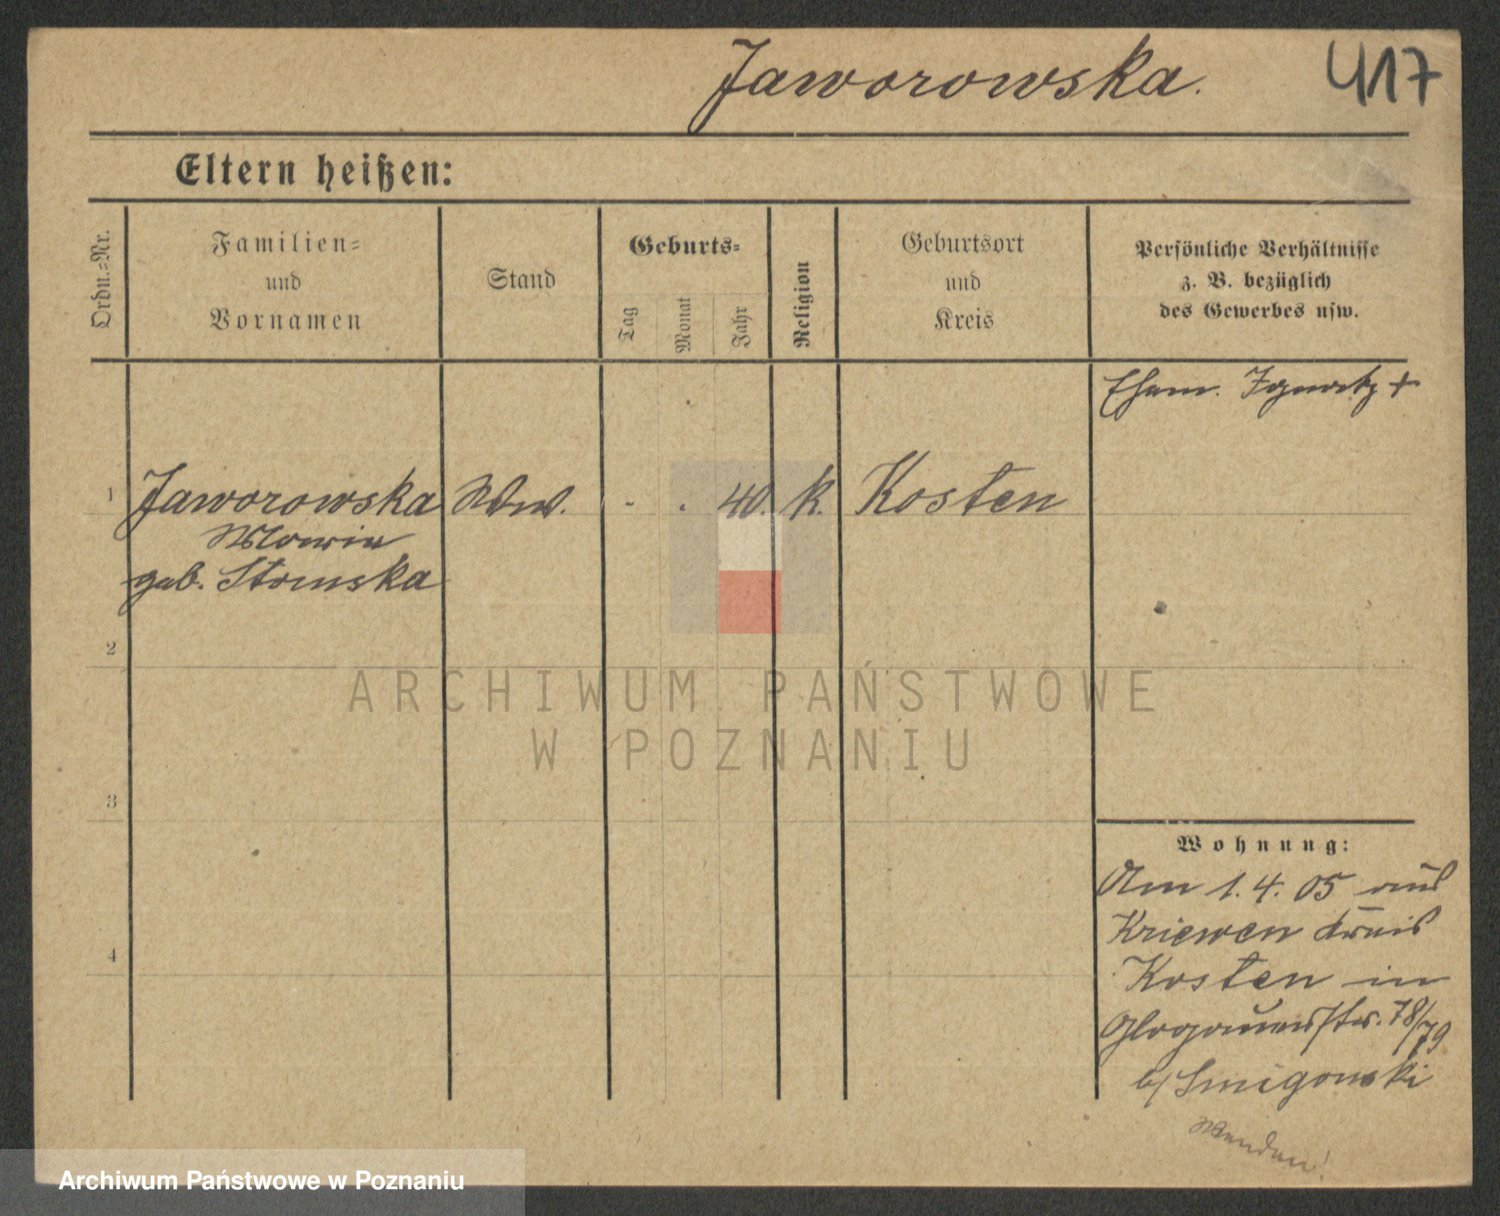 Jaworowska.
417
Eltern heißen:
Ordn.=Nr.
Familien=
und
Vornamen
Stand
Geburts=
Tag
Monat
Jahr
Religion
Geburtsort
und
Kreis
Persönliche Verhältnisse
z. B. bezüglich
des Gewerbes usw.
Ehem. Ignatz +
1
Jaworowska
Ww.
- . 40.
k.
Kosten
Maria
geb. Stomska
2
3
4
ARCHIWUM PAŃSTWOWE
W POZNANIU
Wohnung:
Am 1. 4. 05 aus
Kriewen Kreis
Kosten in
Glogauerstr. 78/79
b/ Smigowski
Wenden!
Archiwum Państwowe w Poznaniu